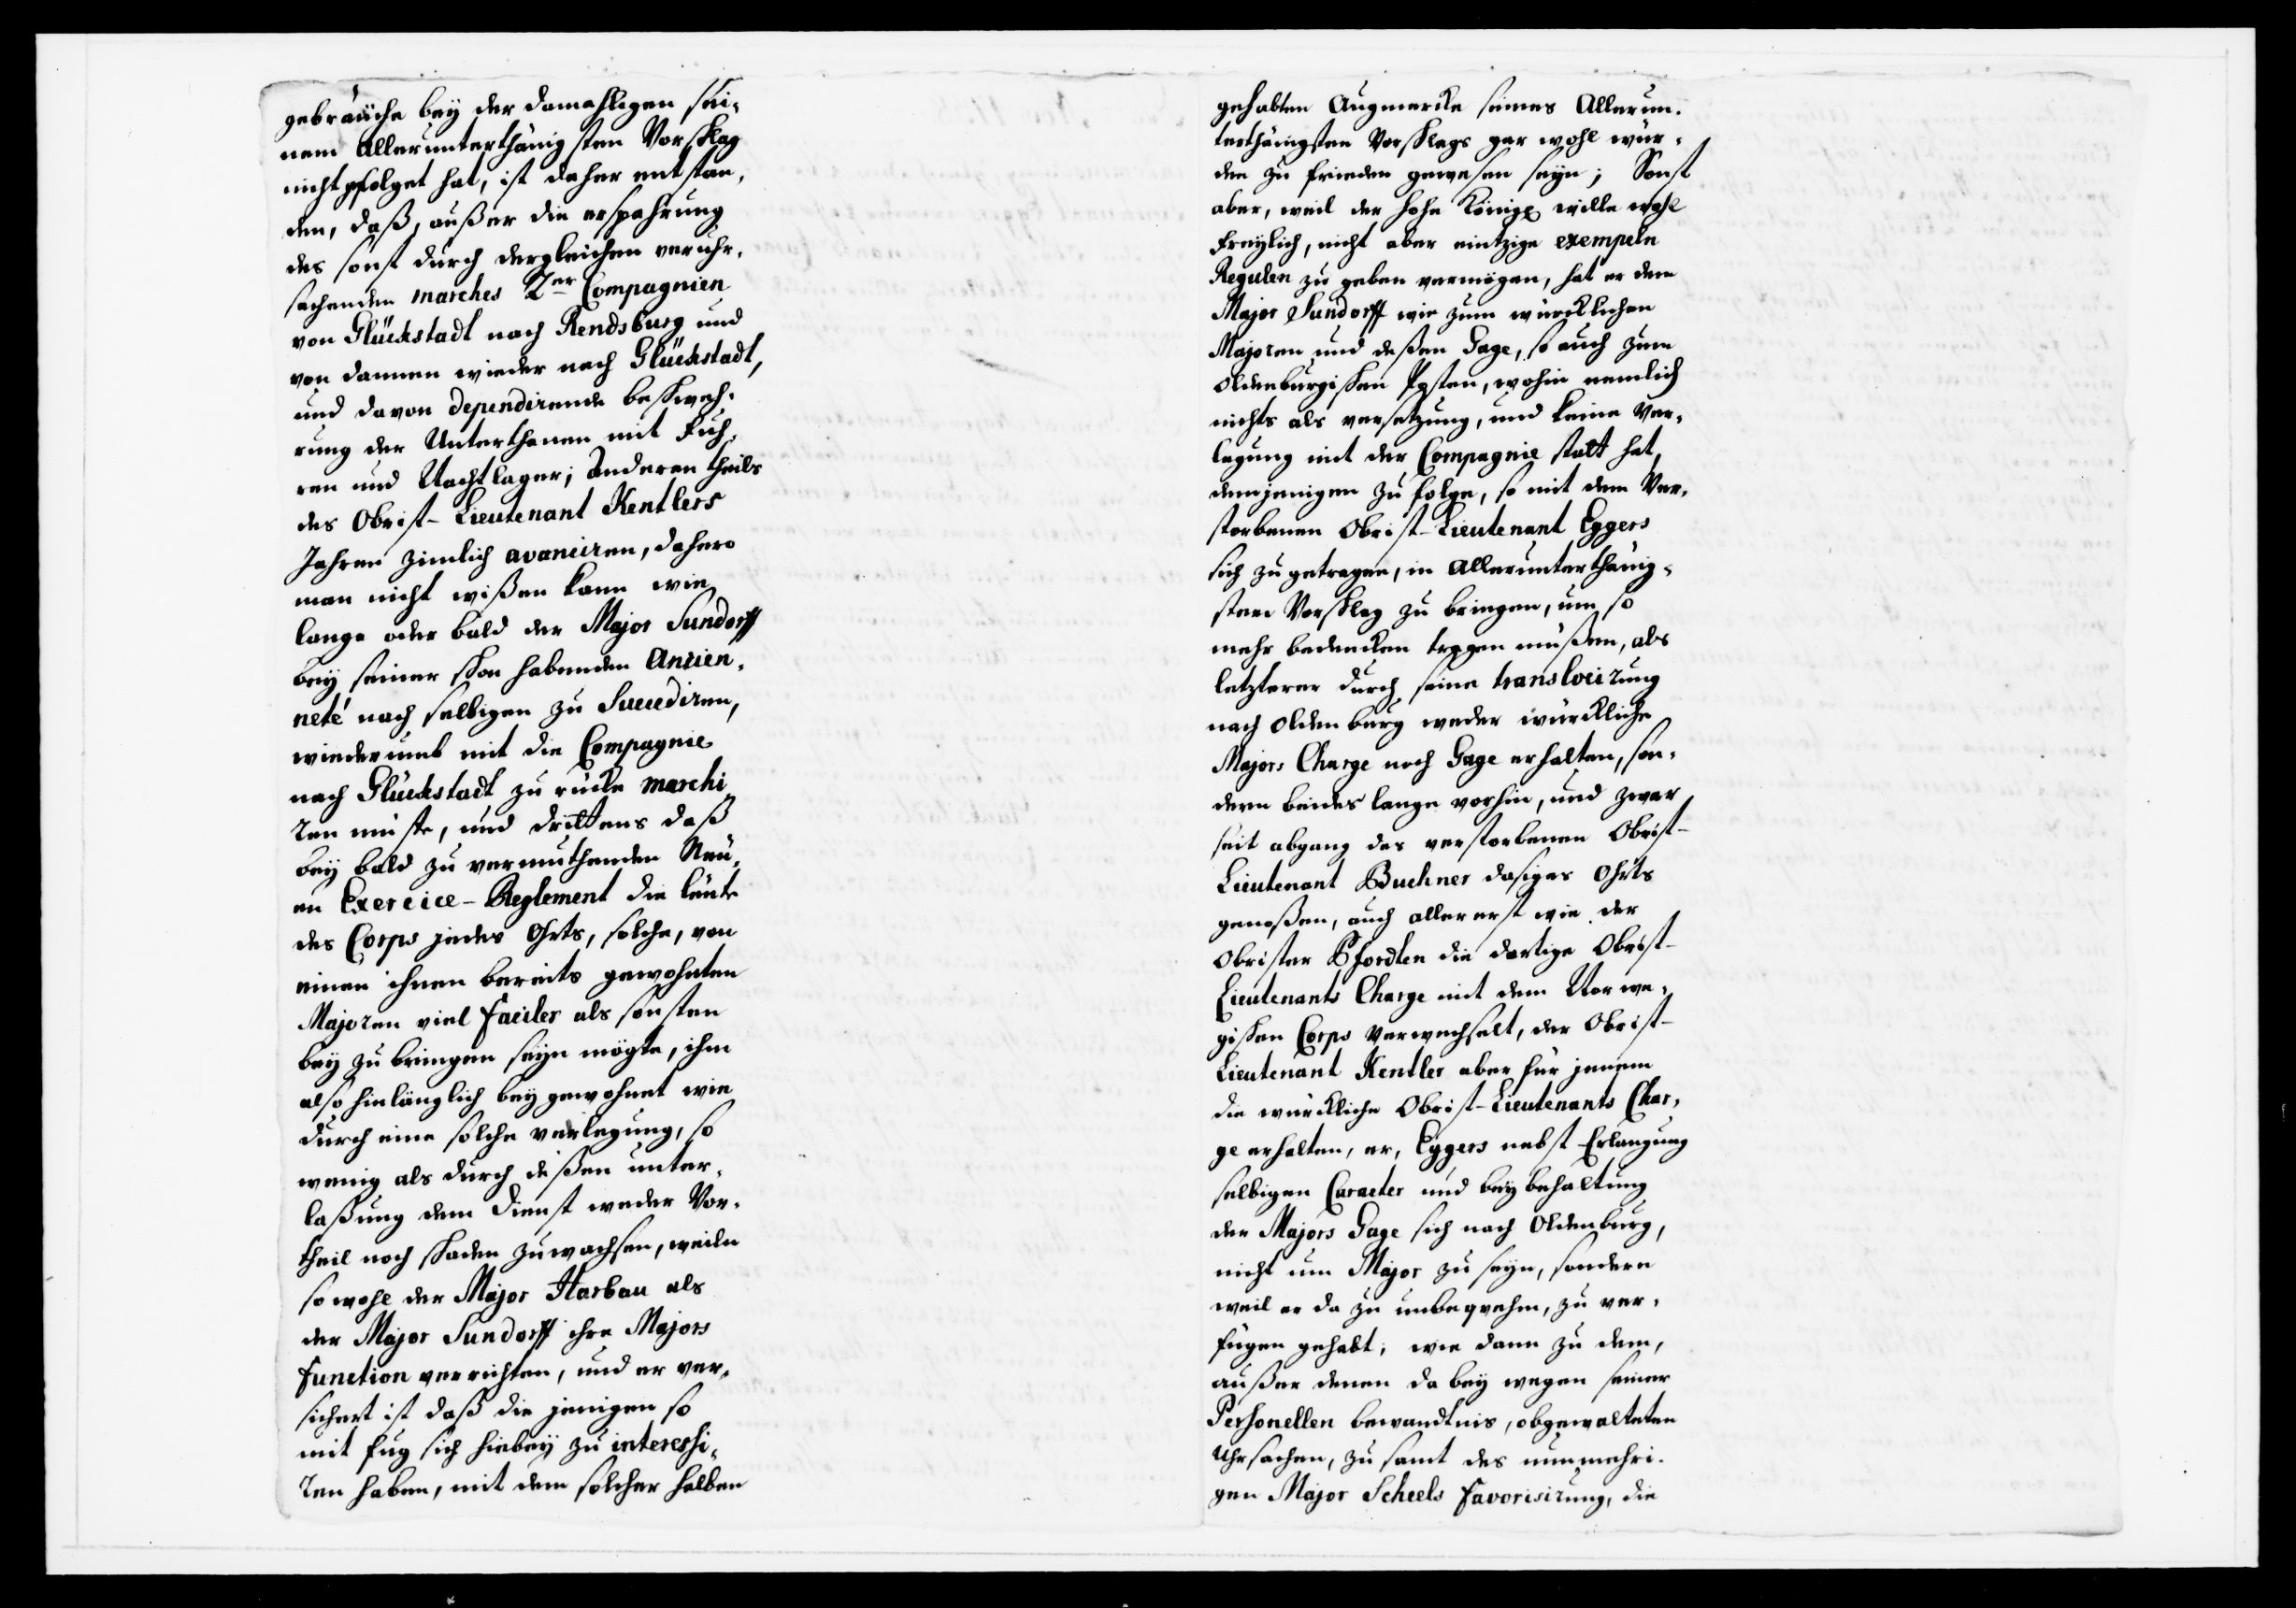 gebräüche bey der damahligen sei¬
nem Allerunterthänigsten Vorschlag
nicht gefolget hat, ist daher entstan¬
den, daß, außer die erspahrung
des sonst durch dergleichen veruhr¬
sachenden marches 2er Compagnien
von Glückstadt nach Rendsburg und
von dannen wieder nach Glückstadt,
und davon dependirende beschweh¬
rung der Unterthanen mit Fuh¬
ren und Nachtlager; Anderen theils
des Obrist-Lieutenant Kentlers
Jahren zimlich avanciren, dahero
man nicht wißen kann wie
lange oder bald der Major Sundorff
bey seiner schon habenden Ancien¬
neté nach selbigen zu Succediren,
wiederumb mit die Compagnie
nach Glückstadt zu rücke marchi¬
ren müste, und drittens daß
bey bald zu vermuthenden Neü¬
en Exercice-Reglement die leüte
des Corps jedes Ohrts, solche, von
einen ihnen bereits gewohnten
Majoren viel faciler als sonsten
bey zu bringen seyn mögte, ihm
also hinlänglich beygewohnet wie
durch eine solche verlegung, so
wenig als durch deßen unter¬
laßung dem Dienst weder Vor¬
theil noch schaden zuwachsen, weiln
so wohl der Major Harbau als
der Major Sundorff ihre Majors
function verrichten, und er ver¬
sichert ist daß die jenigen so
mit fug sich hiebey zu interessi¬
ren haben, mit dem solcher halben
gehabten Augmercke seines Allerun¬
terthänigsten Vorschlags gar wohl wür¬
den zu frieden gewesen seyn; Sonst
aber, weil der hohe Königl. wille wohl
freylich, nicht aber eintzige exempeln
Regulen zu geben vermögen, hat er dem
Major Sundorff wie zum würcklichen
Majoren und deßen Gage, so auch zum
Oldenburgischen Posten, wohin nemlich
nichts als versetzung, und keine Ver¬
legung mit der Compagnie statt hat,
demjenigen zu folge, so mit dem Ver¬
storbenen Obrist-Lieutenant Eggers
sich zugetragen, in Allerunterthänig¬
sten Vorschlag zu bringen, um so
mehr bedencken tragen müßen, als
letzterer durch seine translocirung
nach Oldenburg weder würckliche
Majors Charge noch Gage erhalten, son¬
dern beides lange vorhin, und zwar
seit abgang des verstorbenen Obrist-
Lieutenant Buchner dasiges Ohrts
genoßen, auch allererst wie der
Obrister Pfordten die dortige Obrist-
Lieutenants Charge mit dem Norwe¬
gischen Corps verwechselt, der Obrist-
Lieutenant Kentler aber für jenem
die würckliche Obrist-Lieutenants Char¬
ge erhalten, er, Eggers nebst Erlangung
selbigen Caracter und beybehaltung
der Majors Gage sich nach Oldenburg,
nicht um Major zu seyn, sondern
weil er da zu unbeqvehm, zu ver¬
fügen gehabt; wie dann zu dem,
außer denen dabey wegen seiner
Personellen bewandtnis, obgewalteten
Uhrsachen, zu samt des nunmehri¬
gen Major Scheels favorisirung, die